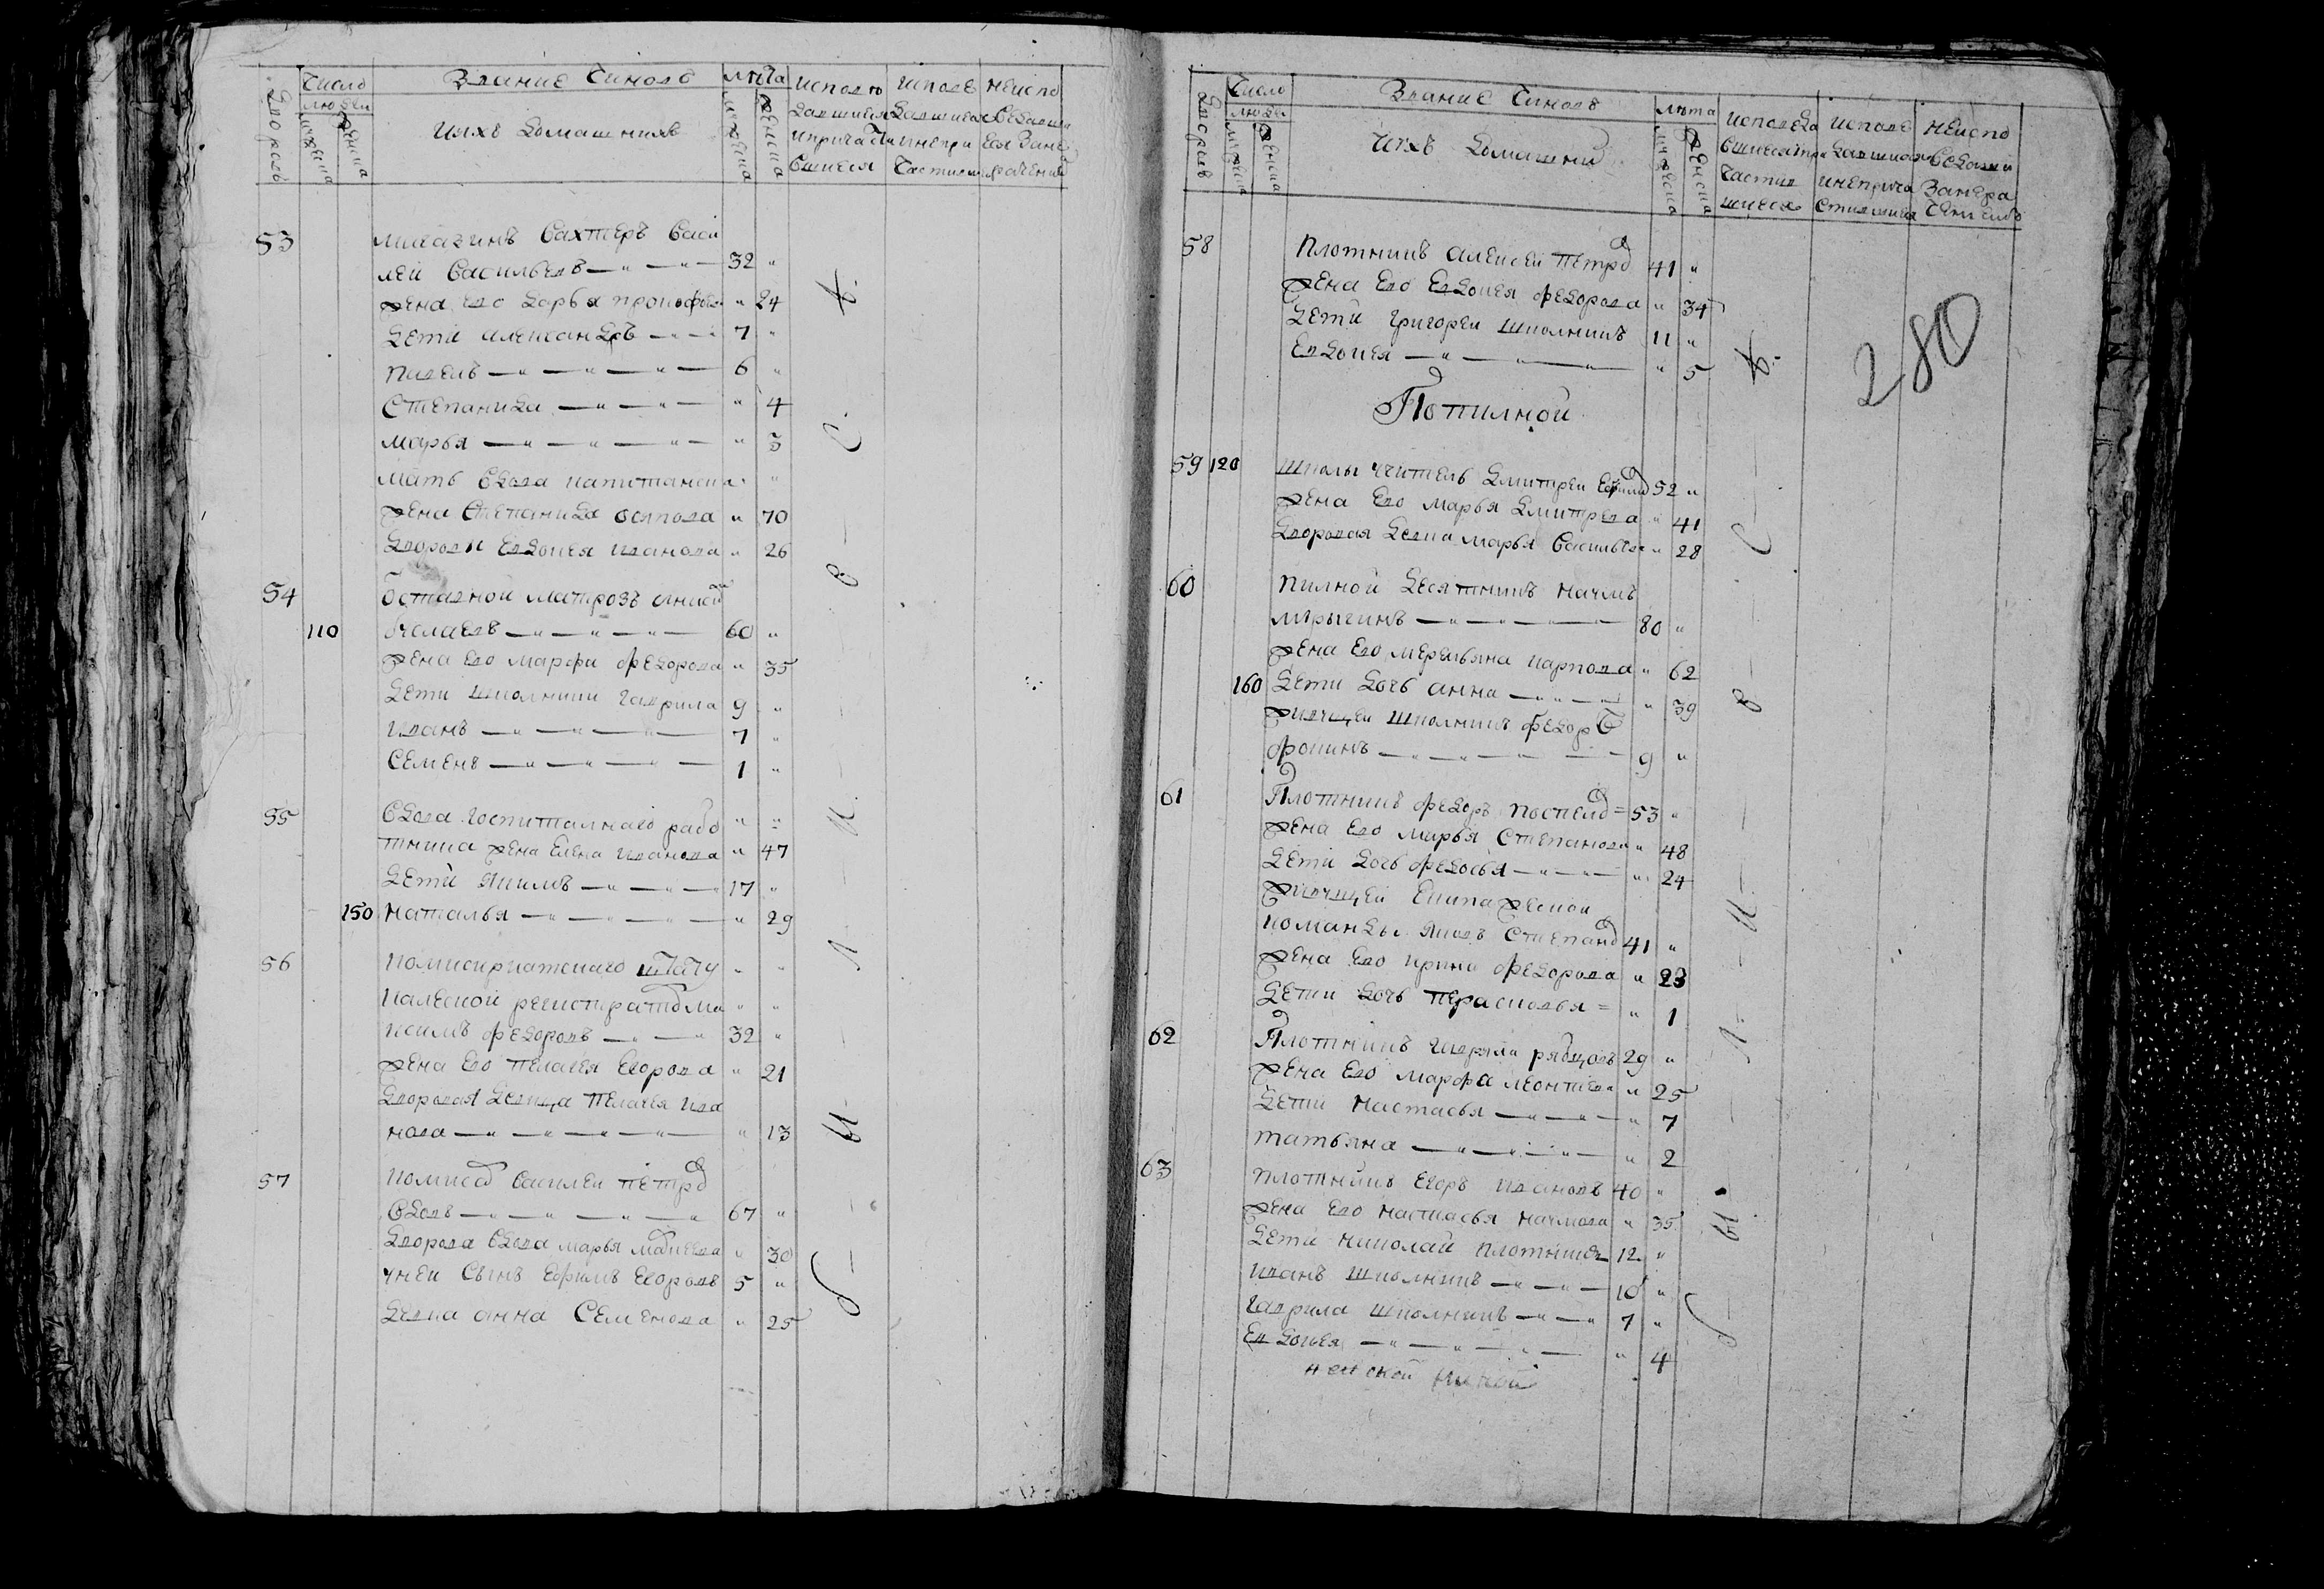 Дворовъ
Число
людей
мужеска
женска
Звание Чиновъ
ихъ домашнихъ
лѣта
мужеска
женска
исповѣ
давшияся
и причасти
вшиеся
исповѣ
давшияся
и непри
частив
неиспо
ведавши
еся
53 магазинъ вахтеръ Васи
лей васильевъ 32 "
жена ево дарья прокофьева " 24
дети александръ 7 "
павелъ 6 "
степанида " 4
марья " 3
мать вдова капитанска "
жена степанида осипова " 70
дворовая евдокея иванова " 26
54 отставной матрозъ
110 60 "
жена ево марфа федорова " 35
дети школники гаврила 9 "
иванъ 7 "
семенъ 1 "
55 вдова госпиталнаго рабо " "
тника жена елена иванова " 47
дети якимъ 17 "
150 наталья " 29
56 комисариатскаго штату " "
канцелярской регистратор ма " "
ксимъ федоровъ 32 "
жена ево пелагея егорова " 21
дворовая девица пелагея ива
нова " 13
57 комисар василеи петров
вдовъ 67 "
дворовая вдова марья матвеева " 30
у неи сынъ ефимъ егоровъ 5 "
девка анна семенова " 25
Дворовъ
Число
людей
мужеска
женска
Звание Чиновъ
ихъ домашни
лѣта
мужеска
женска
исповеда
вшиеся при
частив
шиеся
исповѣ
давшияся
и неприча
стившия
неиспо
ведавши
за нера
чениемъ
280
58 плотникъ алексеи петров 41 "
жена ево евдокея федорова " 34
дети григореи школникъ 11 "
евдокея " 5
Попилной
59 120 школы учитель дмитреи ефимов 52 "
жена ево марья дмитрева " 41
дворовая девка марья васильева " 28
60 пилной десятникъ наумъ
мрыгинъ 80 "
жена ево меремьяна карпова " 62
160 дети дочь анна " 39
живущеи школникъ федор
фокинъ 9 "
61 плотникъ федоръ поспелов 53 "
жена ево марья степанова " 48
дети дочь федосья " 24
живущеи екипажескои
команды яковъ степанов 41 "
жена ево ирина федорова " 23
дети дочь перасковья " 1
62 плотникъ гаврила рябцовъ 29 "
жена ево марфа леонтиева " 25
дети настасья " 7
татьяна " 2
63 плотникъ егоръ ивановъ 40 "
жена ево настасья наумова " 35
дети николаи плотникъ 12 "
иванъ школникъ 10 "
гаврила школникъ 7 "
евдокея " 4